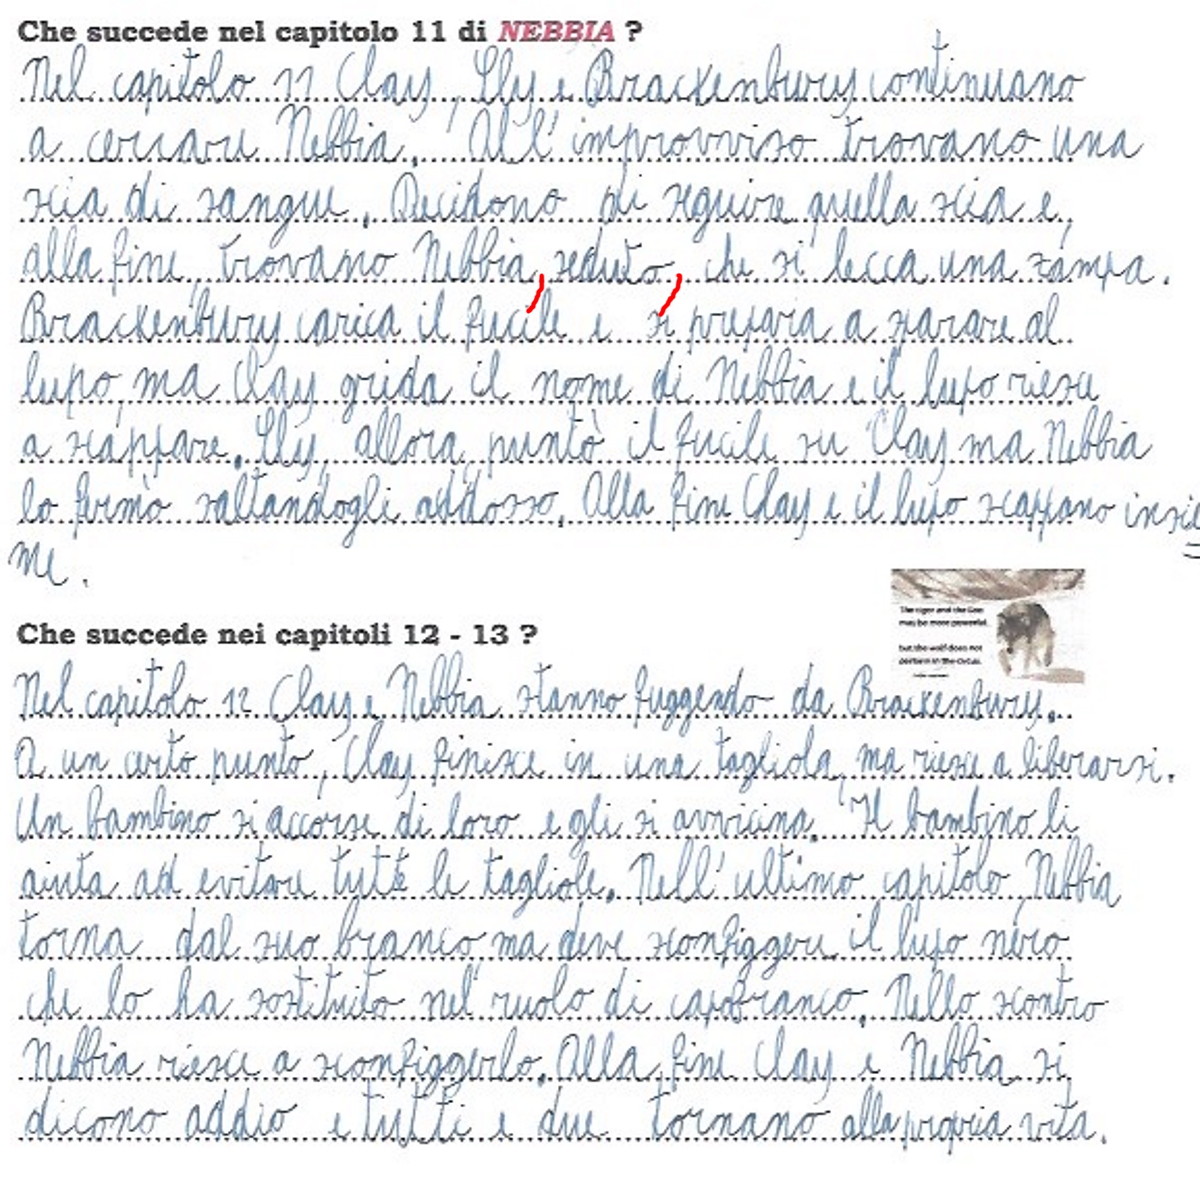 Che succede nel capitolo 11 di NEBBIA ?
Nel capitolo 11 Clay, Sly e Brackenbury continuano
a cercare Nebbia. All'improvviso trovano una
scia di sangue. Decidono di seguire quella scia e,
alla fine, trovano Nebbia, seduto, che si lecca una zampa.
Brackenbury carica il fucile e si prepara a sparare al
lupo, ma Clay grida il nome di Nebbia e il lupo riesce
a scappare. Sly, allora, puntò il fucile su Clay ma Nebbia
lo fermò saltandogli addosso. Alla fine Clay e il lupo scappano insie
me.
The tiger and the lion
may be more powerful,
but the wolf does not
perform in the circus.
Che succede nei capitoli 12 - 13 ?
Nel capitolo 12 Clay e Nebbia stanno fuggendo da Brackenbury.
A un certo punto, Clay finisce in una tagliola, ma riesce a liberarsi.
Un bambino si accorse di loro e gli si avvicina. Il bambino li
aiuta ad evitare tutte le tagliole. Nell'ultimo capitolo, Nebbia
torna dal suo branco ma deve sconfiggere il lupo nero
che lo ha sostituito nel ruolo di capobranco. Nello scontro
Nebbia riesce a sconfiggerlo. Alla fine Clay e Nebbia si
dicono addio e tutti e due tornano alla propria vita.